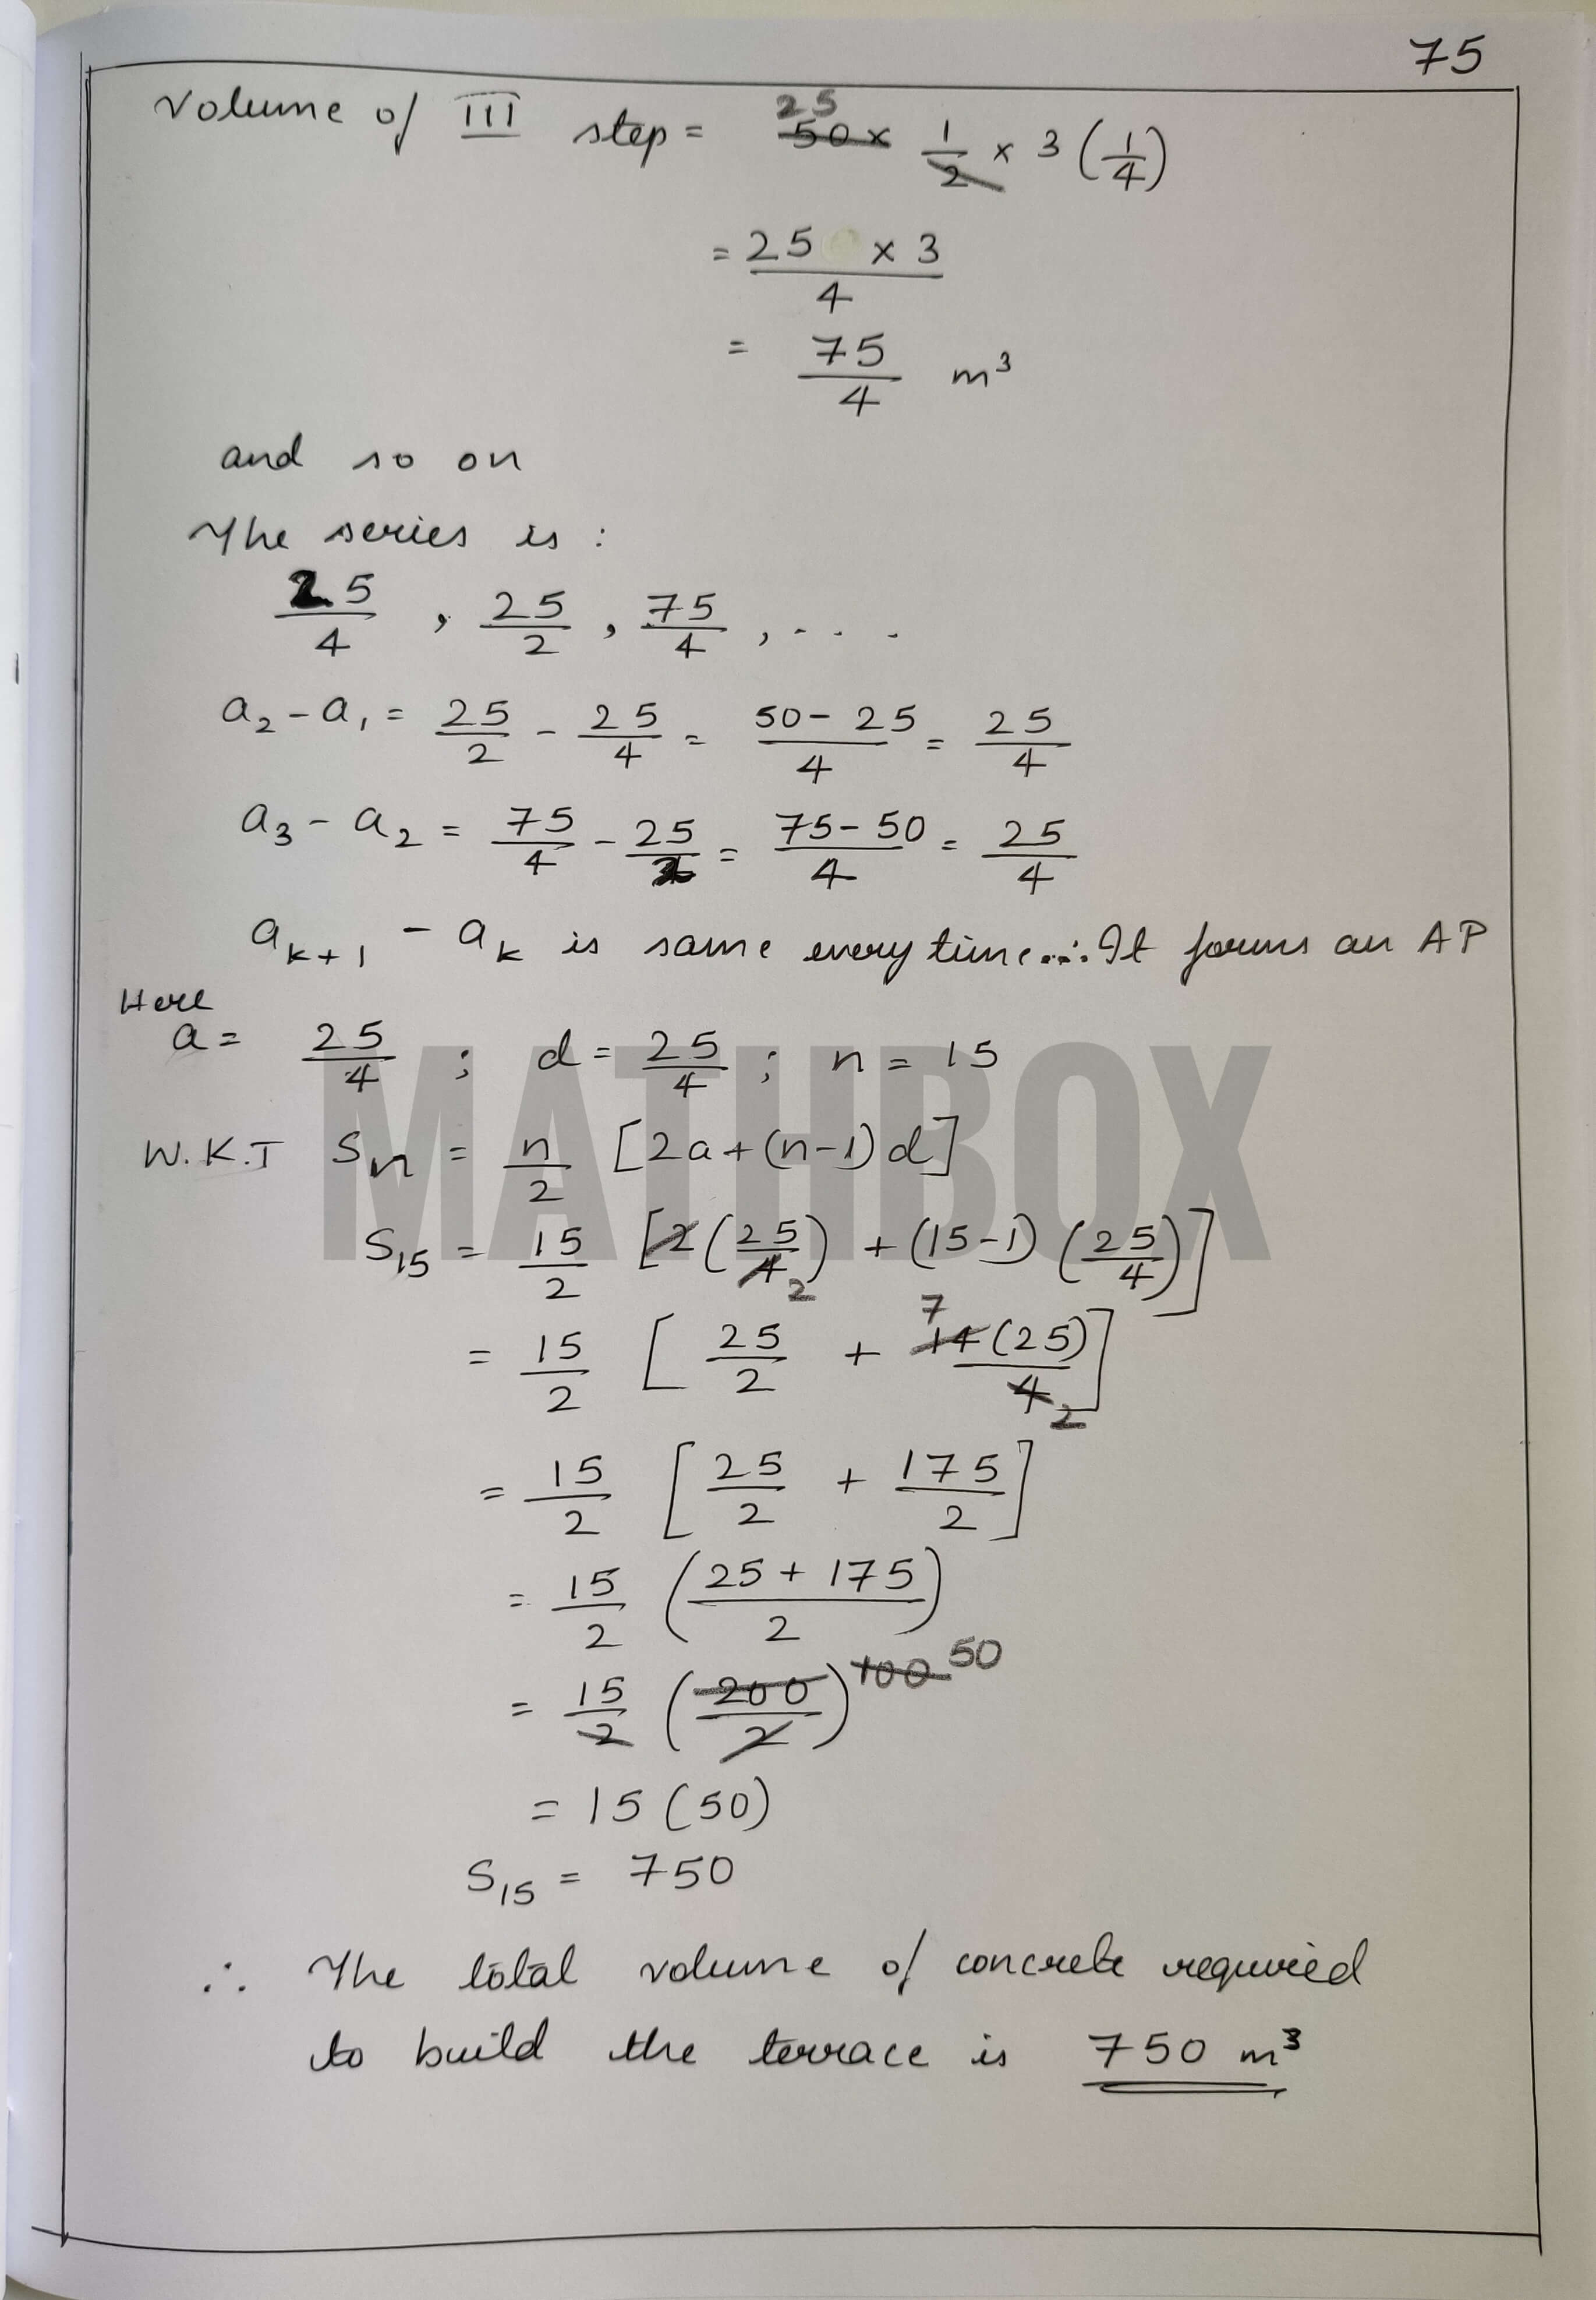 75
Volume of III step = 50 × 1/2 × 3 (1/4) 25
= 25 × 3 / 4
= 75/4 m³
and so on
The series is :
25/4 , 25/2 , 75/4 , . . . .
a₂ - a₁ = 25/2 - 25/4 = 50 - 25 / 4 = 25/4
a₃ - a₂ = 75/4 - 25/2 = 75 - 50 / 4 = 25/4
aₖ₊₁ - aₖ is same every time. ∴ It forms an AP
Here
a = 25/4 ; d = 25/4 ; n = 15
MATHBOX
W.K.T Sₙ = n/2 [2a + (n-1) d]
S₁₅ = 15/2 [2 (25/4) 2 + (15-1) (25/4)]
= 15/2 [25/2 + 7 14 (25) / 4 2]
= 15/2 [25/2 + 175/2]
= 15/2 (25 + 175 / 2)
= 15/2 (200/2) 100 50
= 15 (50)
S₁₅ = 750
∴ The total volume of concrete required
to build the terrace is 750 m³